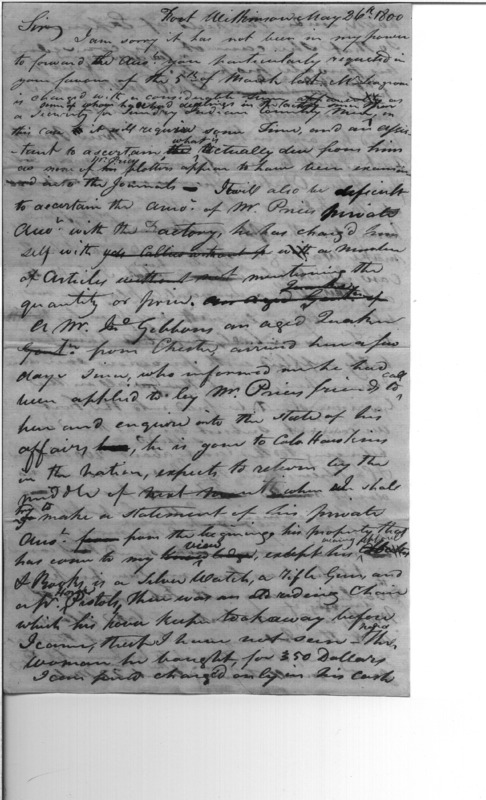 Fort Wilkinson May 26th 1800
Sir,
I am sorry it has not been in my power
to forward the Accts you particularly requested in
your favour of the 5th of March last, Mr
is charged with a considerable
a security for Sundry Indian Country Men, in
this case it will require some time, and an assis-
-tant to ascertain what is actually due from him
as none of his appear to have been examined
into the Journals - It will also be difficult
to ascertain the Acct. of Mr. Prices private
Acct. with the Factory, he has charged him
self with a number
of Articles without mentioning the
quantity or price. Quaker
A Mr. Jas Gibbons an aged Quaker
from Chester, arrived here a few
days since, who informed me he had
been applied to by Mr. Prices friends to call
here and enquire into the state of his
affairs, he is gone to Colo Hawkins
in the Nation, expects to return by the
middle of next month when I shall
try to make a statement of his private
Acct. from the beginning his property that
has come to my view, except his
& Books, is a Silver Watch, a Rifle Gun, and
a pr. Pistols, there was an riding Chair
which his have kept took away before
I came, that I have not seen - The negro
Woman he bought, for 350 Dollars
I can find charged only in his cash